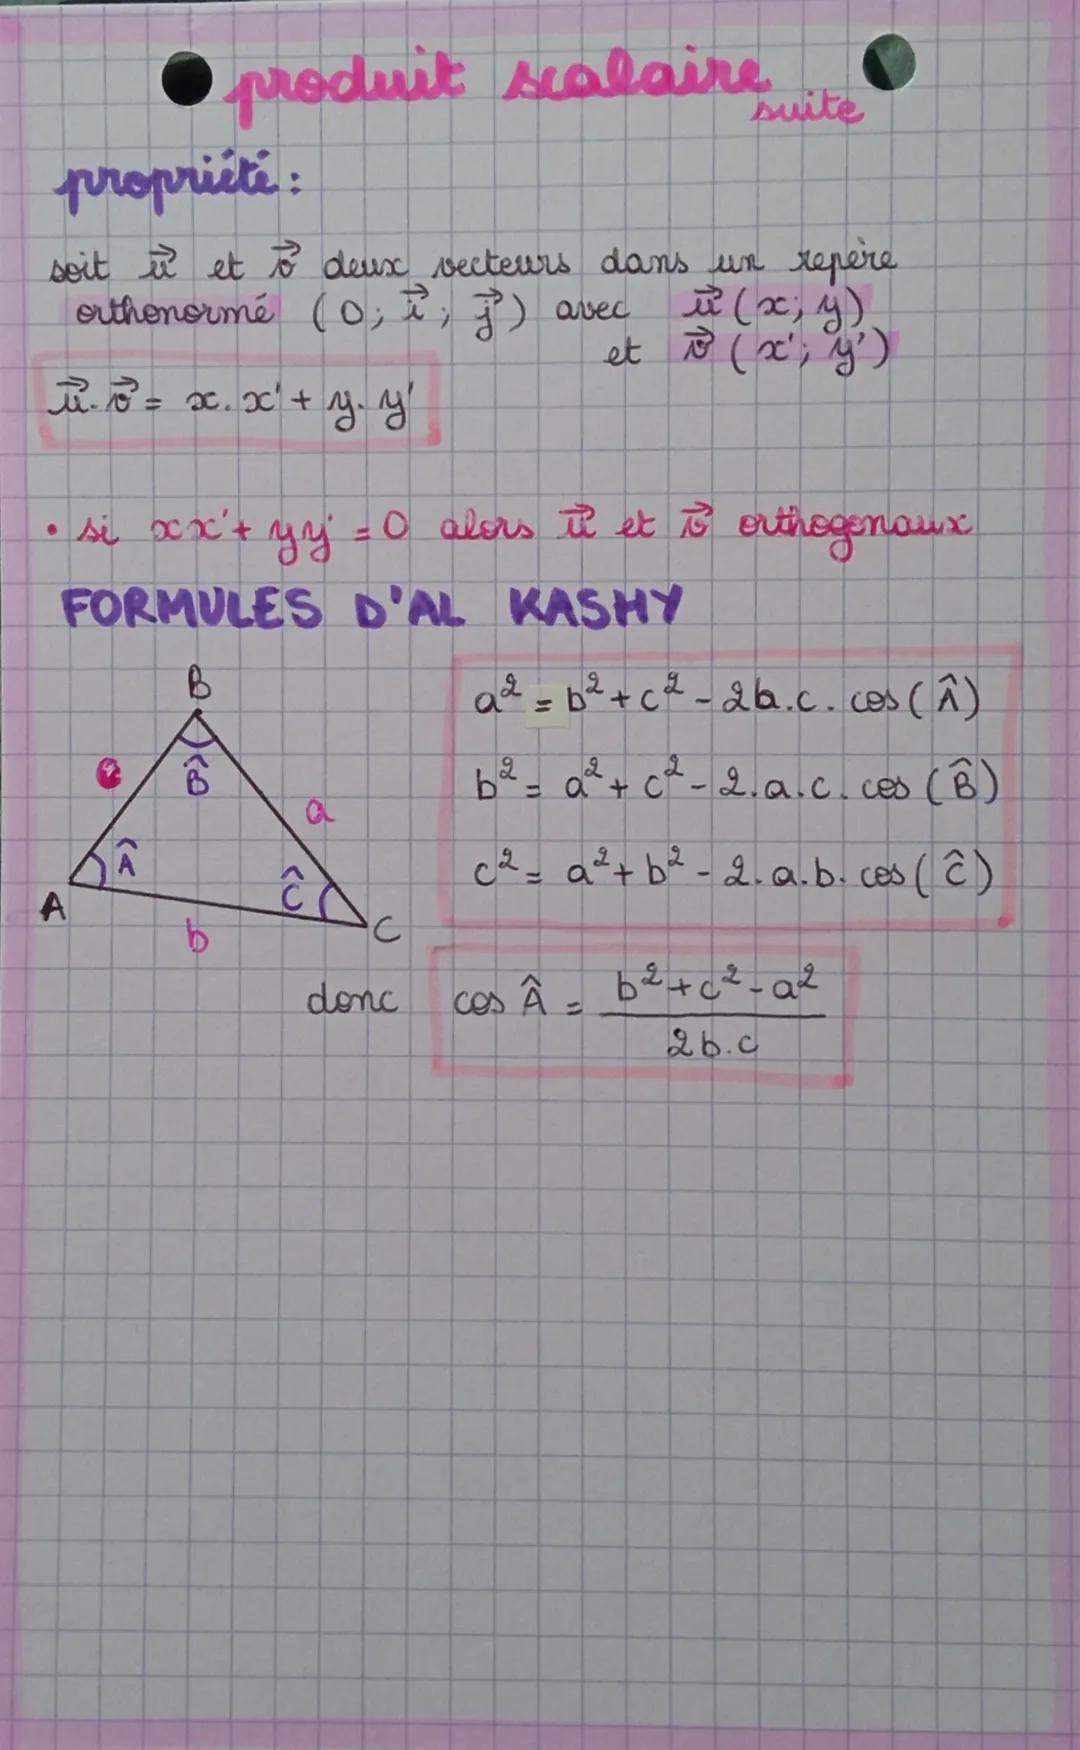 produit scalaire
suite
propriété :
soit u⃗ et v⃗ deux vecteurs dans un repère
orthonormé (O; i⃗; j⃗) avec u⃗ (x; y)
et v⃗ (x'; y')
u⃗.v⃗ = x.x' + y.y'
• si xx' + yy' = 0 alors u⃗ et v⃗ orthogonaux
FORMULES D'AL KASHY
B
B̂
a
Â
A
Ĉ
C
b
a² = b² + c² - 2b.c. cos(Â)
b² = a² + c² - 2.a.c. cos(B̂)
c² = a² + b² - 2.a.b. cos(Ĉ)
donc cos Â = b² + c² - a²
2b.c